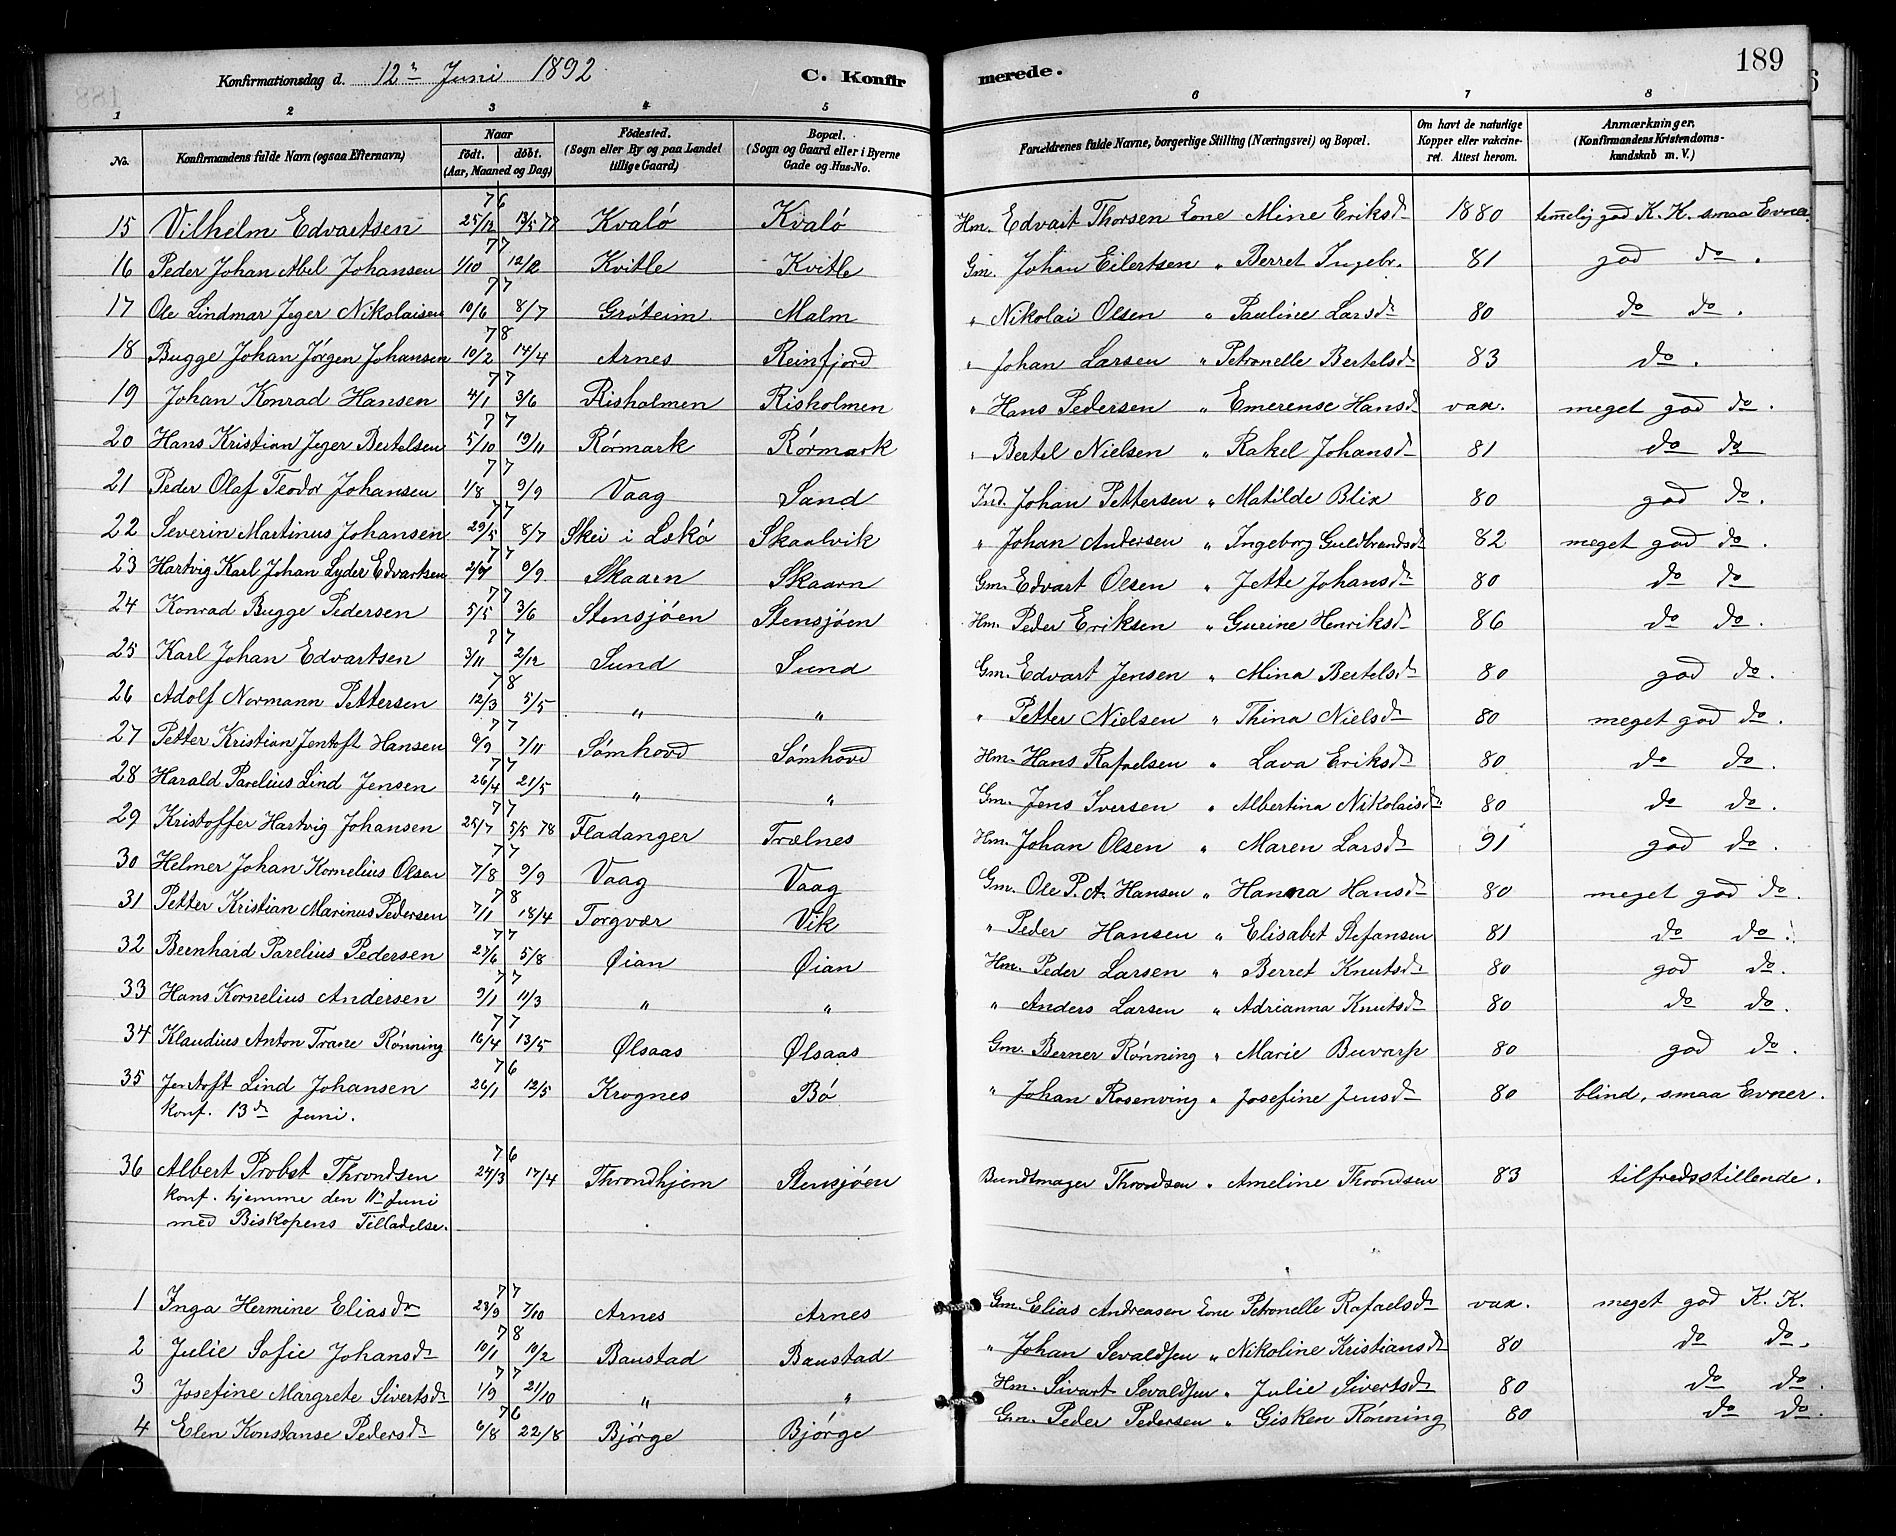 189
Konfirmationsdag d. 12te Juni 1892 C. Konfirmerede.
1 2 3 4 5 6 7 8
No. Konfirmandens fulde Navn (ogsaa Efternavn) Naar født. døbt. (Aar, Maaned og Dag) Fødested. (Sogn eller By og paa Landet tillige Gaard) Bopæl. (Sogn og Gaard eller i Byerne Gade og Hus-No. Forældrenes fulde Navne, borgerlige Stilling (Næringsvei) og Bopæl. Om havt de naturlige Kopper eller vakcineret. Attest herom. Anmærkninger. (Konfirmandens Kristendomskundskab m. V.)
15 Vilhelm Edvartsen 76 25/12 13/5 77 Kvalø Kvalø Hm. Edvart Thorsen Kone Mine Eriksdr 1880 temmelig god K. K. smaa Evner
16 Peder Johan Abel Johansen 77 1/10 12/12 Kvitle Kvitle Gm. Johan Eilertsen " Berret Ingebr. 81 god do.
17 Ole Lindmar Jeger Nikolaisen 77 10/6 8/7 Grøteim Malm " Nikolai Olsen " Pauline Larsdr 80 do do.
18 Bugge Johan Jørgen Johansen 78 10/2 14/4 Arnes Reinfjord " Johan Larsen " Petronelle Bertelsdr 83 do.
19 Johan Konrad Hansen 77 4/1 3/6 Risholmen Risholmen " Hans Pedersen " Emerense Hansdr vax. meget god do.
20 Hans Kristian Jeger Bertelsen 77 5/10 19/11 Rørmark Rørmark " Bertel Nielsen " Rakel Johansdr 81 do do
21 Peder Olaf Teodor Johansen 77 1/8 9/9 Vaag Sand Ind. Johan Pettersen " Matilde Blix 80 god do.
22 Severin Martinus Johansen 77 29/5 8/7 Skei i Lekø Skaalvik " Johan Andersen " Ingeborg Guldbrandsdr 82 meget god do.
23 Hartvig Karl Johan Lyder Edvartsen 77 9/9 Skaarn Skaarn Gm. Edvart Olsen " Jette Johansdr 80 do do
24 Konrad Bugge Pedersen 77 5/5 3/6 Stensjøen Stensjøen Hm. Peder Eriksen " Gurine Henriksdr 86 do do.
25 Karl Johan Edvartsen 77 3/11 2/12 Sund Sund Gm. Edvart Jensen " Mina Bertelsdr 80 god do.
26 Adolf Normann Pettersen 78 12/3 5/5 " " " Petter Nielsen " Thina Nielsdr 80 meget god do.
27 Petter Kristian Jentoft Hansen 77 9/9 7/11 Sømhovd Sømhovd Hm. Hans Rafaelsen " Lava Eriksdr 80 do do.
28 Harald Parelius Lind Jensen 77 26/4 21/5 " " Gm. Jens Iversen " Albertina Nikolaisdr 80 do do.
29 Kristoffer Hartvig Johansen 77 25/7 5/5 78 Fladanger Trælnes Hm. Johan Olsen " Maren Larsdr 91 god do.
30 Helmer Johan Kornelius Olsen 77 7/8 9/9 Vaag Vaag Gm. Ole P. A. Hansen " Hanna Hansdr 80 meget god do.
31 Petter Kristian Marinus Pedersen 78 7/1 18/4 Torgvær Vik " Peder Hansen " Elisabet Stefansen 81 do do.
32 Bernhard Parelius Pedersen 77 23/6 5/8 Øian Øian Hm. Peder Larsen " Berret Knutsdr 80 god do.
33 Hans Kornelius Andersen 77 9/1 11/3 " " " Anders Larsen " Adrianna Knutsdr 80 do do.
34 Klaudius Anton Trane Rønning 77 16/4 13/5 Ølsaas Ølsaas Gm. Berner Rønning " Marie Buvarp 80 god do.
35 Jentoft Lind Johansen 76 26/1 12/5 Krognes Bø " Johan Rosenving " Josefine Jensdr 80 blind, smaa Evner.
konf. 13de Juni.
36 Albert Probst Throndsen 76 24/3 17/4 Throndhjem Stensjøen Bundtmager Throndsen " Ameline Throndsen 83 tilfredsstillende.
konf. hjemme den 11te Juni
med Biskopens Tilladelse.
1 Inga Hermine Eliasdr 77 23/9 7/10 Arnes Arnes Gm. Elias Andreasen Kone Petronelle Rafaelsdr vax. meget god K. K.
2 Julie Sofie Johansdr 78 10/1 10/2 Baustad Baustad " Johan Sevaldsen " Nikoline Kristiansdr 80 do do.
3 Josefine Margrete Sivertsdr 77 1/9 21/10 " " Hm. Sivart Sevaldsen " Julie Sivertsdr 80 do do.
4 Elen Konstanse Pedersdr 76 6/8 22/8 Bjørge Bjørge Gm. Peder Pedersen " Gisken Rønning 80 do do.